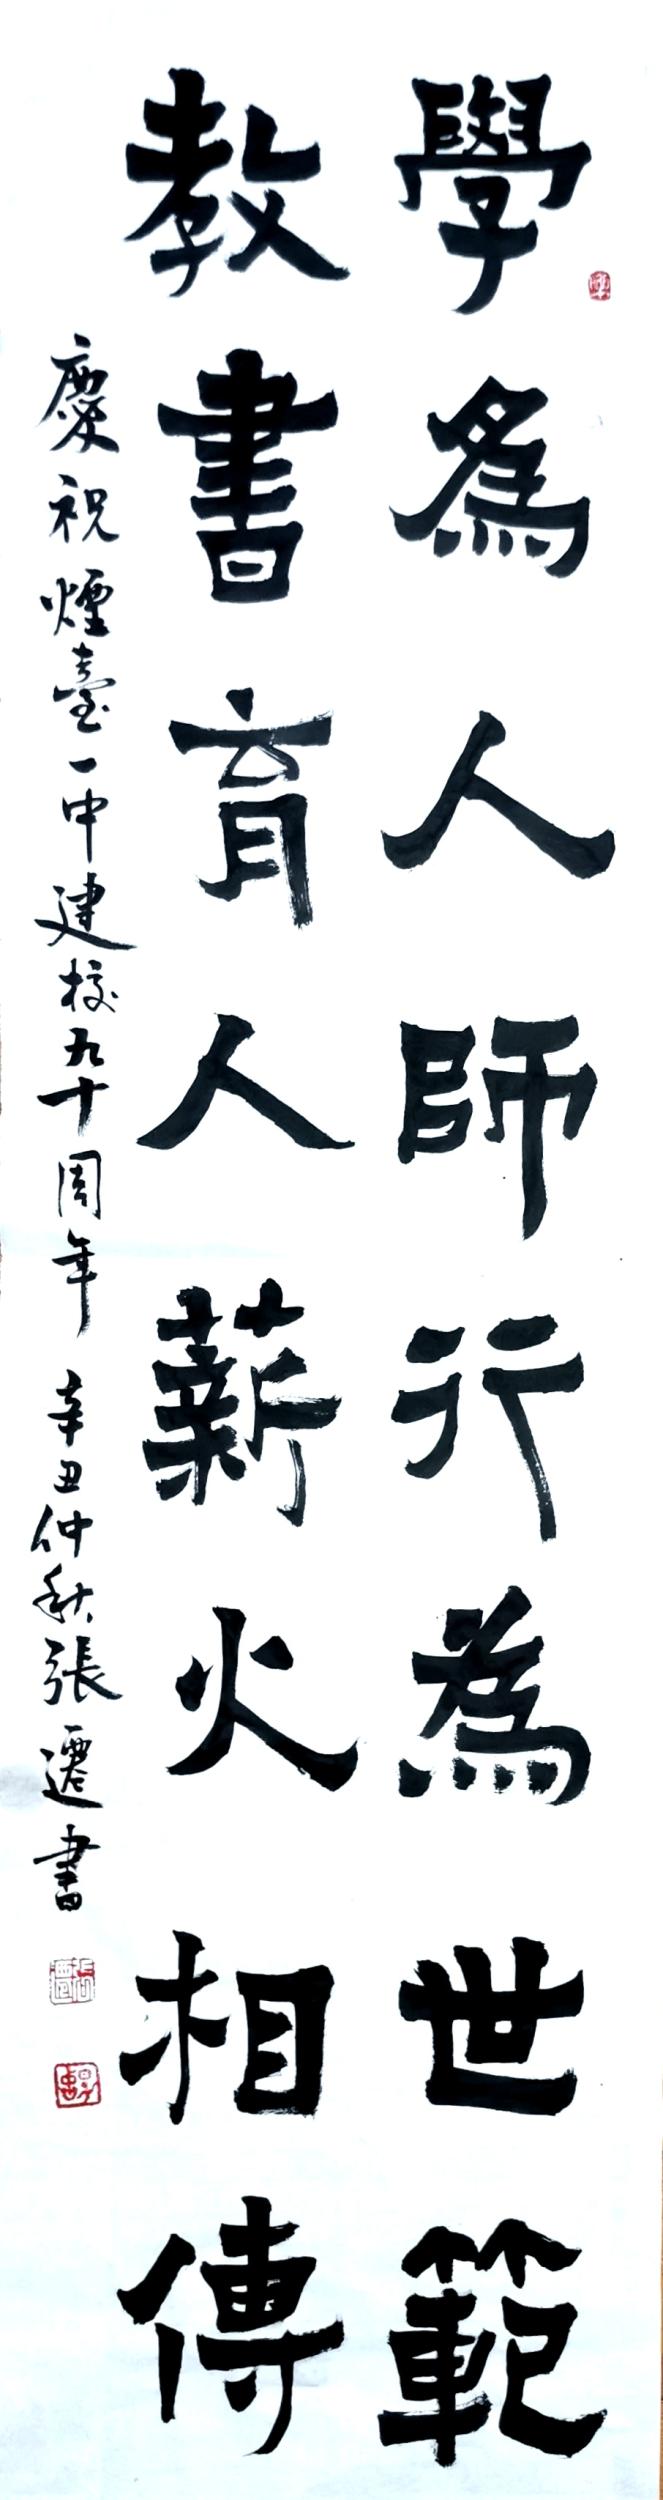 學爲人師行為世範
教書育人薪火相傳
慶祝煙臺一中建校九十周年 辛丑仲秋張遷書